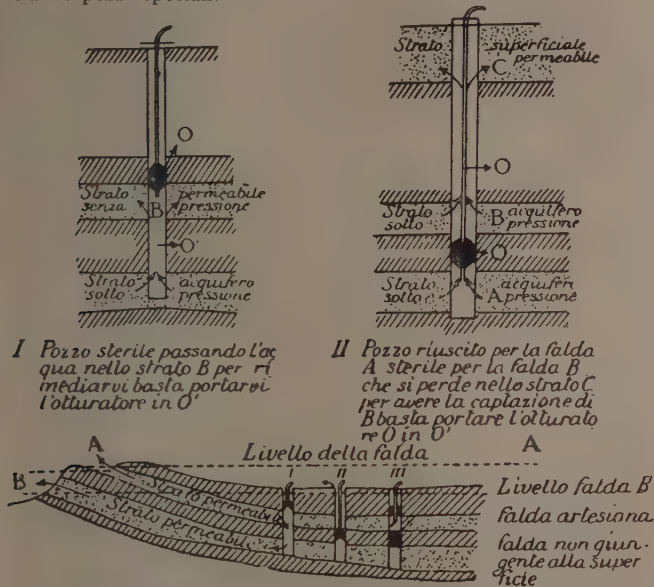 O
Strato
senza
permeabile
pressione
B
O'
Strato
sotto
acquifero
pressione
I Pozzo sterile passando l'ac
qua nello strato B per ri
mediarvi basta portarvi
l'otturatore in O'
Strato
superficiale
permeabile
C
O
Strato
sotto
B
acquifero
pressione
O
Strato
sotto
A
acquifero
pressione
II Pozzo riuscito per la falda
A sterile per la falda B
che si perde nello strato C
per avere la captazione di
B basta portare l'otturato
re O in O'
A
Livello della falda
A
B
Strato permeabile
Strato permeabile
i
ii
iii
Livello falda B
falda artesiana
falda non giun-
gente alla super
ficie